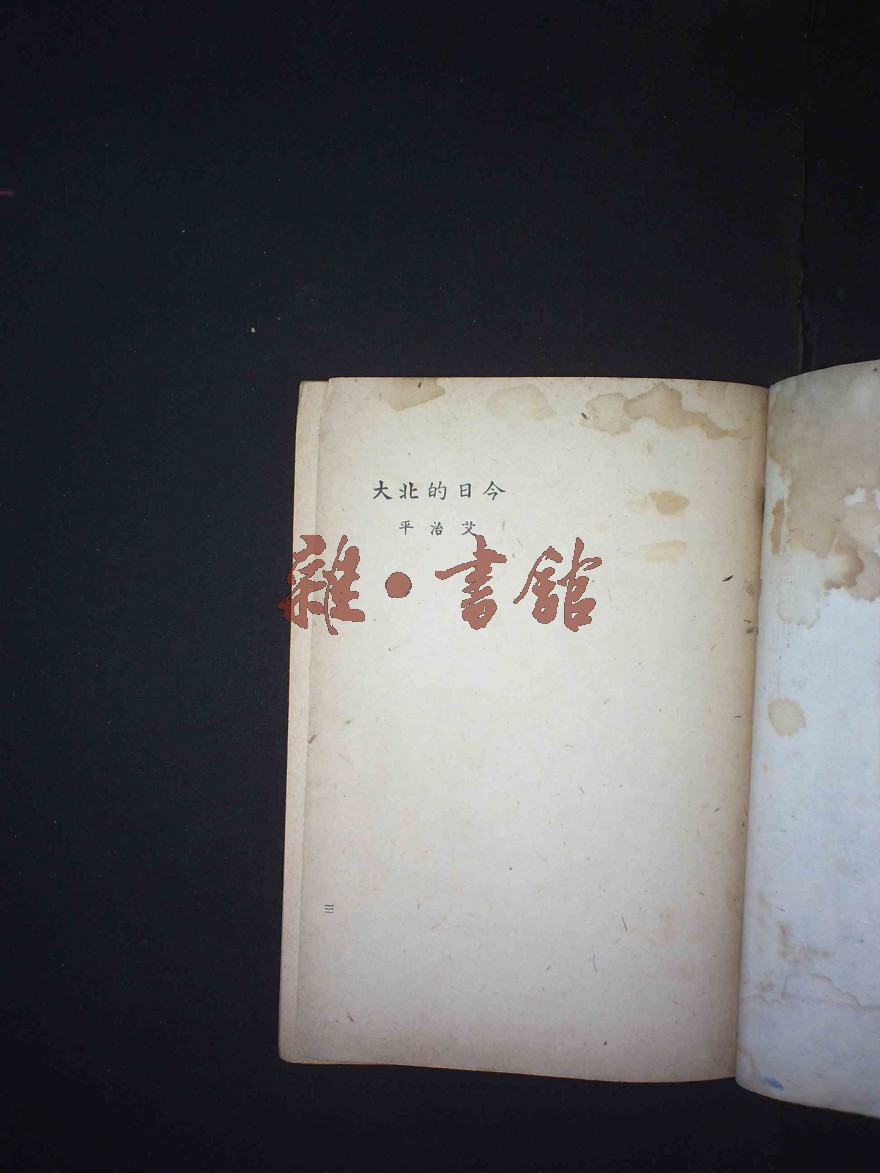 今日的北大
艾治平
雜·書館
三